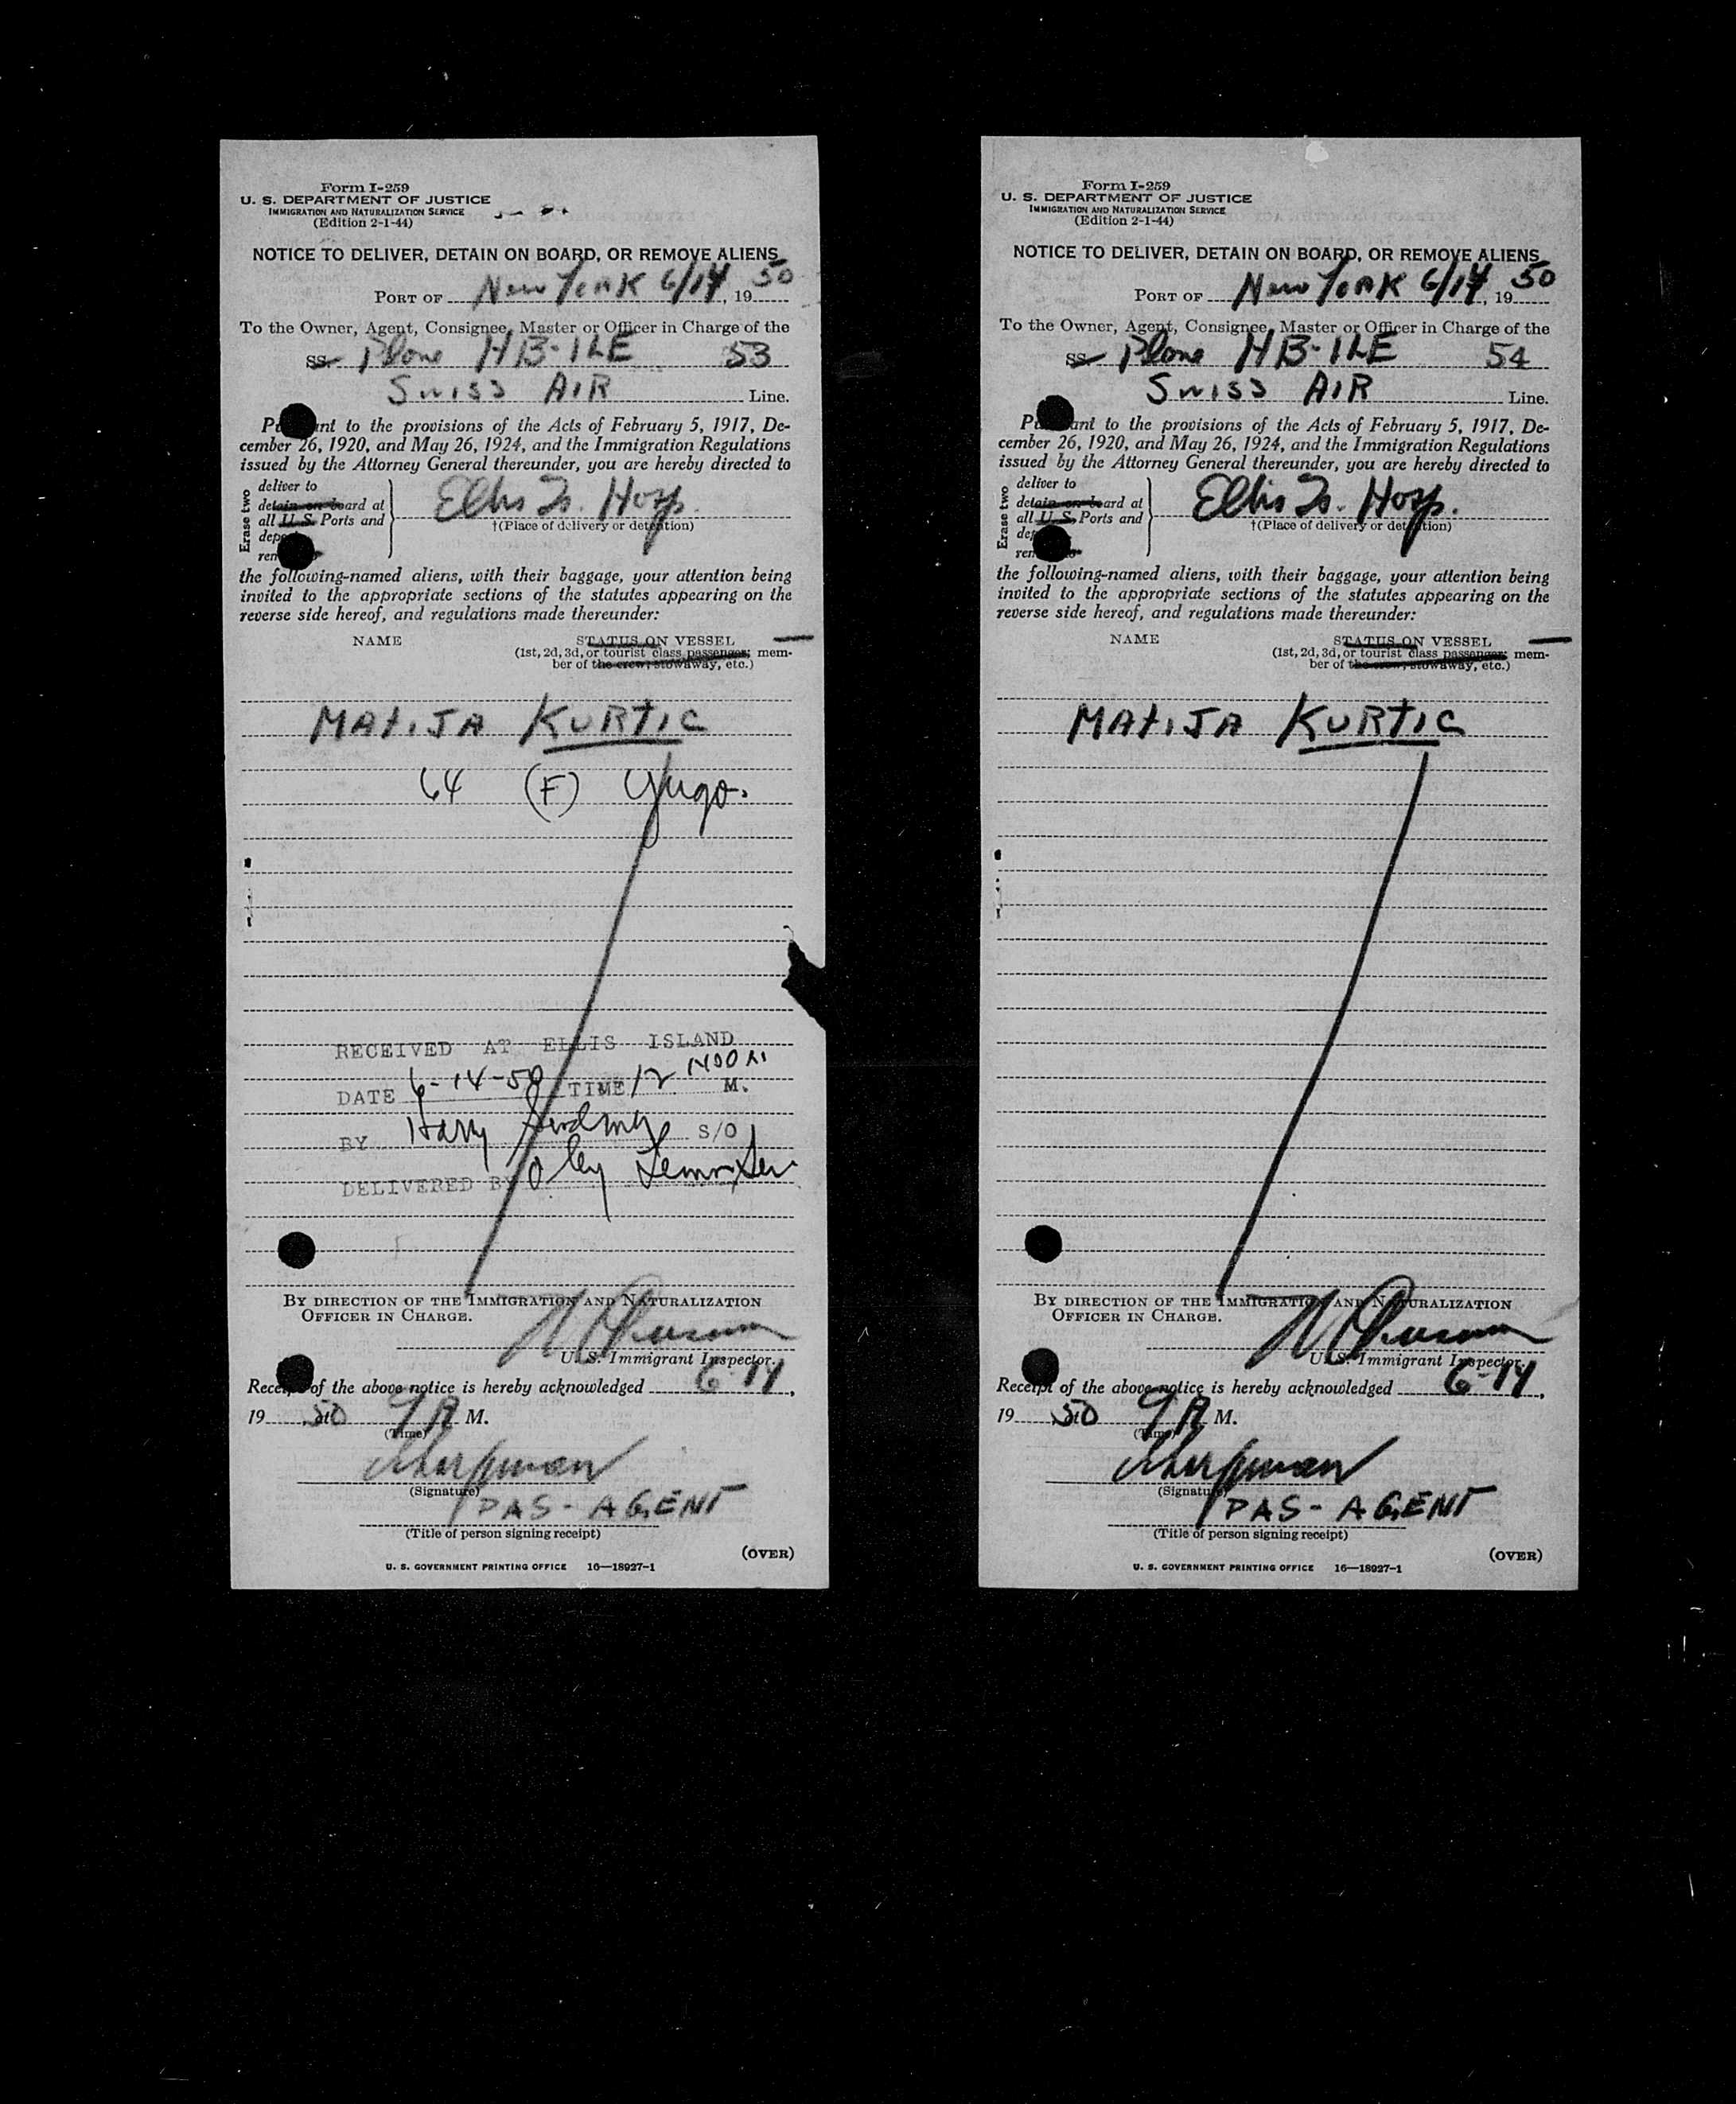 Form I-259
U. S. DEPARTMENT OF JUSTICE
IMMIGRATION AND NATURALIZATION SERVICE
(Edition 2-1-44)
NOTICE TO DELIVER, DETAIN ON BOARD, OR REMOVE ALIENS
PORT OF New York 6/14, 1950
To the Owner, Agent, Consignee, Master or Officer in Charge of the
SS Plane HB-ILE 53
SWISS AIR Line.
Pu nt to the provisions of the Acts of February 5, 1917, De-
cember 26, 1920, and May 26, 1924, and the Immigration Regulations
issued by the Attorney General thereunder, you are hereby directed to
Erase two
deliver to
detain on board at
all U. S. Ports and
dep
rem
Ellis Is. Hosp.
†(Place of delivery or detention)
the following-named aliens, with their baggage, your attention being
invited to the appropriate sections of the statutes appearing on the
reverse side hereof, and regulations made thereunder:
NAME STATUS ON VESSEL
(1st, 2d, 3d, or tourist class passenger; mem-
ber of the crew, stowaway, etc.)
MATIJA KURTIC
64 (F) Yugo.
RECEIVED AT ELLIS ISLAND
DATE 6-14-50 TIME 12 M.
BY Harry S/O
DELIVERED BY
BY DIRECTION OF THE IMMIGRATION AND NATURALIZATION
OFFICER IN CHARGE.
U. S. Immigrant Inspector.
Receipt of the above notice is hereby acknowledged 6-14,
19 50 9 A M.
(Time)
(Signature)
PAS-AGENT
(Title of person signing receipt)
(OVER)
U. S. GOVERNMENT PRINTING OFFICE 16—18927-1
Form I-259
U. S. DEPARTMENT OF JUSTICE
IMMIGRATION AND NATURALIZATION SERVICE
(Edition 2-1-44)
NOTICE TO DELIVER, DETAIN ON BOARD, OR REMOVE ALIENS
PORT OF New York 6/14, 1950
To the Owner, Agent, Consignee, Master or Officer in Charge of the
SS Plane HB-ILE 54
SWISS AIR Line.
Pu ant to the provisions of the Acts of February 5, 1917, De-
cember 26, 1920, and May 26, 1924, and the Immigration Regulations
issued by the Attorney General thereunder, you are hereby directed to
Erase two
deliver to
detain on board at
all U. S. Ports and
dep
rem
Ellis Is. Hosp.
†(Place of delivery or detention)
the following-named aliens, with their baggage, your attention being
invited to the appropriate sections of the statutes appearing on the
reverse side hereof, and regulations made thereunder:
NAME STATUS ON VESSEL
(1st, 2d, 3d, or tourist class passenger; mem-
ber of the crew, stowaway, etc.)
MATIJA KURTIC
BY DIRECTION OF THE IMMIGRATION AND NATURALIZATION
OFFICER IN CHARGE.
U. S. Immigrant Inspector.
Receipt of the above notice is hereby acknowledged 6-14,
19 50 9 A M.
(Time)
(Signature)
PAS-AGENT
(Title of person signing receipt)
(OVER)
U. S. GOVERNMENT PRINTING OFFICE 16—18927-1